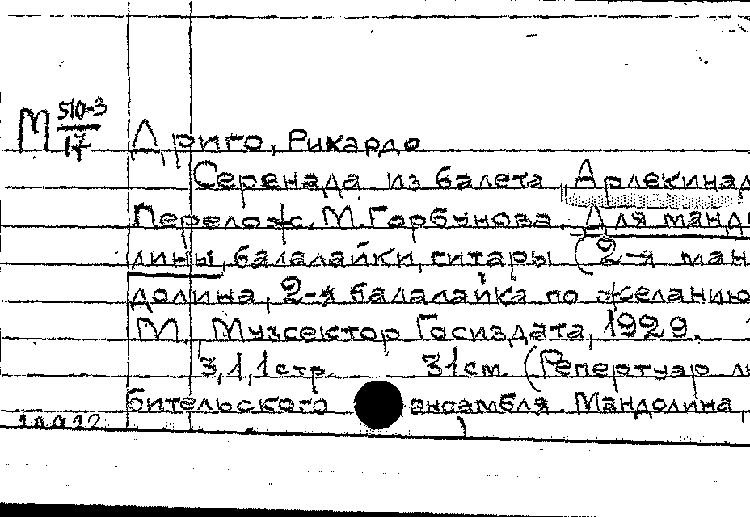 М 510-3
17
Дриго, Рикардо
Серенада из балета „Арлекинад
Перелож. М. Горбунова. Для манд
лины, балалайки, гитары (2-я ман
долина, 2-я балалайка по желанию
М., Музсектор Госиздата, 1929.
3,1,1 стр. 31 см. (Репертуар лю
бительского ансамбля Мандолина,
)